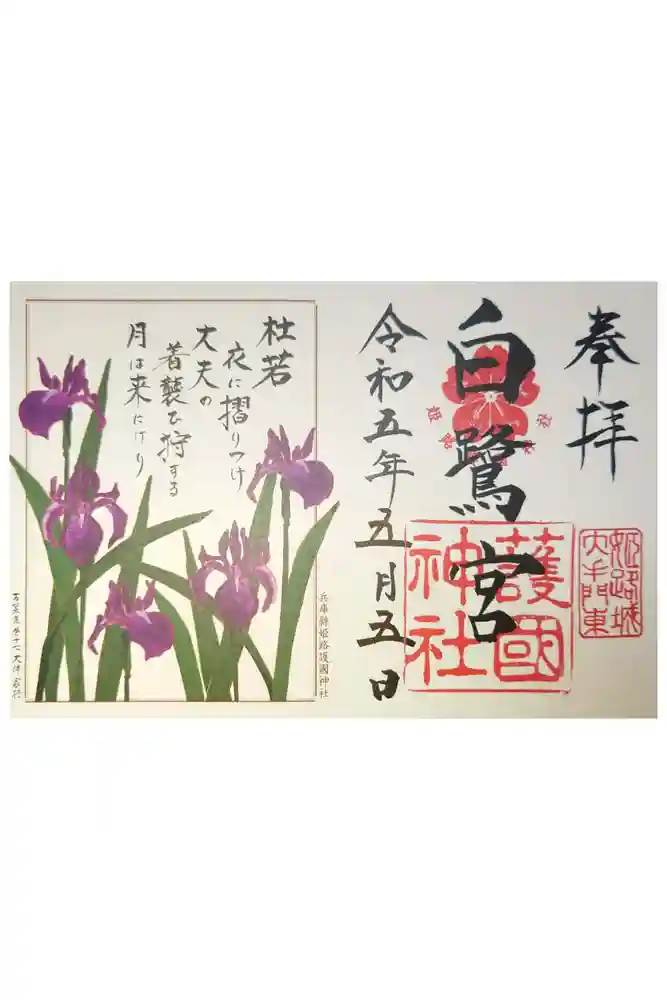 奉拝
白鷺宮
令和五年五月五日
護國
神社
姫路城
大手門東
杜若
衣に摺りつけ
丈夫の
着襲ひ狩する
月は来にけり
兵庫縣姫路護國神社
万葉集巻十七 大伴家持